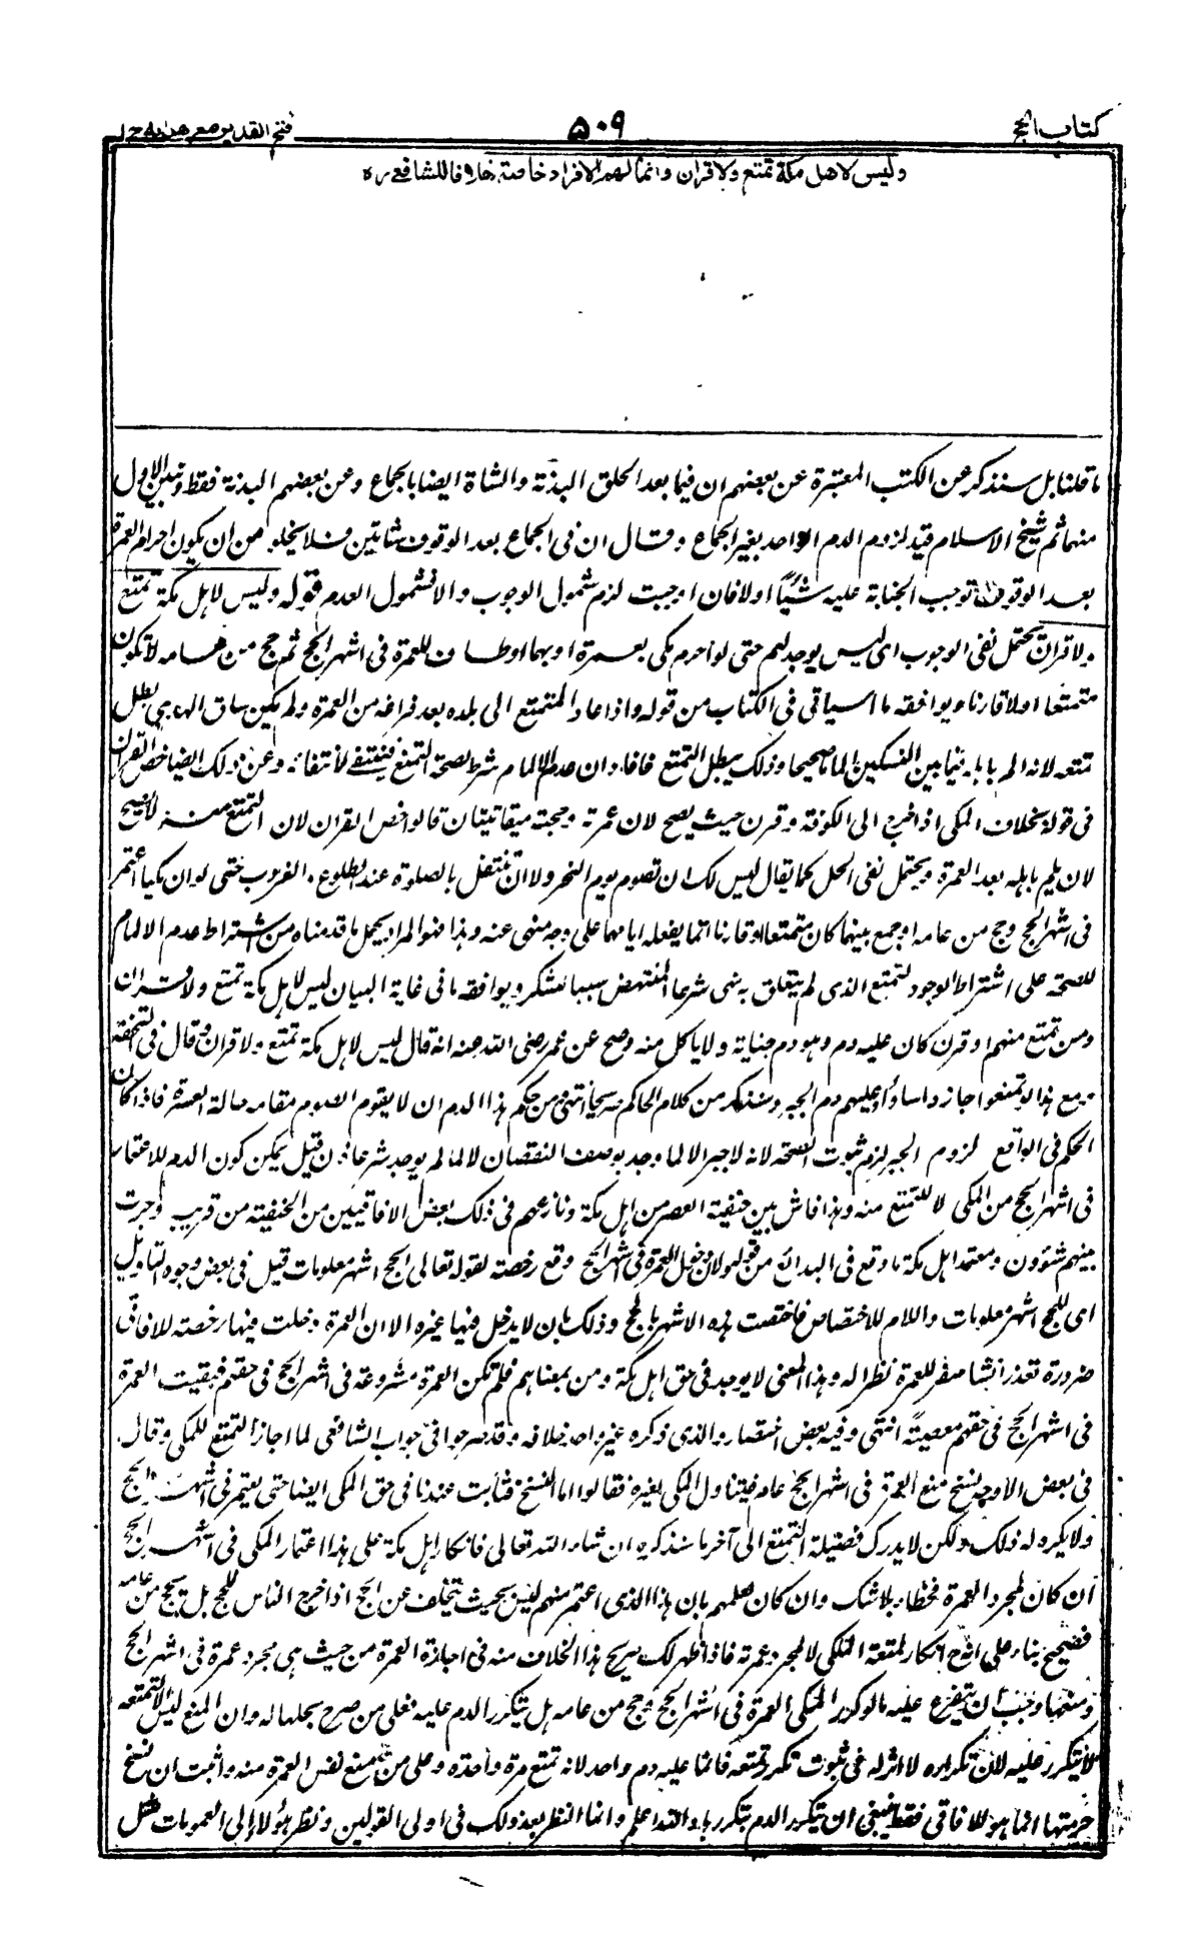 كتاب الحج
۵۰۹
فتح القدير مع هدايه ج ١
وليس لاهل مكة تمتع ولا قران وانما لهم الافراد خاصة خلافا للشافعي ره
ما قلنا بل سنذكر عن الكتب المعتبرة عن بعضهم ان فيما بعد الحلق البدنة والشاة ايضا بالجماع وعن بعضهم البدنة فقط ونبين الاولى
منهما ثم شيخ الاسلام قيد لزوم الدم الواحد بغير الجماع وقال ان فى الجماع بعد الوقوف شاتين فلا يخلو من ان يكون احرام العمرة
بعد الوقوف توجب الجناية عليه شيئًا اولا فان اوجبت لزم شمول الوجوب والا فشمول العدم قوله وليس لاهل مكة تمتع
ولا قران يحتمل نفى الوجود اى ليس يوجد لهم حتى لو احرم مكى بعمرة او بهما وطاف للعمرة فى اشهر الحج ثم حج من عامه لا يكون
متمتعا ولا قارنا ويوافقه ما سياتى فى الكتاب من قوله واذا عاد المتمتع الى بلده بعد فراغه من العمرة ولم يكن ساق الهدى بطل
تمتعه لانه الم باهله فيما بين النسكين الماما صحيحا وذلك يبطل التمتع فافاد ان عدم الالمام شرط لصحة التمتع فينتفى لانتفائه وعن ذلك ايضا خص القران
فى قوله بخلاف المكى اذا خرج الى الكوفة وقرن حيث يصح لان عمرته وحجته ميقاتيتان قالوا خص القران لان التمتع منه لا يصح
لان يلم باهله بعد العمرة ويحتمل نفى الحل كما يقال ليس لك ان تصوم يوم النحر ولا ان تتنفل بالصلوة عند الطلوع والغروب حتى لو ان مكيا اعتمر
فى اشهر الحج وحج من عامه او جمع بينهما كان متمتعا او قارنا اثما بفعله اياهما على وجه منهى عنه وهذا هو المراد بحمل ما قدمناه من اشتراط عدم الالمام
للصحة على اشتراط لوجود التمتع الذى لم يتعلق به نهى شرعا المنتهض سببا للشكر ويوافقه ما فى غاية البيان ليس لاهل مكة تمتع ولا قران
ومن تمتع منهم او قرن كان عليه دم وهو دم جناية ولا ياكل منه وصح عن عمر رضى الله عنه انه قال ليس لاهل مكة تمتع ولا قران وقال فى التحفة
ومع هذا لو تمتعوا جاز واساؤا وعليهم دم الجبر وسنذكر من كلام الحاكم صريحا انتهى ومن حكم هذا الدم ان لا يقوم الصوم مقامه حالة العسرة فاذا كان
الحكم فى الواقع لزوم الجبر لزم ثبوت الصحة لانه لا جبر الا لما وجد بوصف النقصان لا لما لم يوجد شرعا فان قيل يمكن كون الدم للاعتمار
فى اشهر الحج من المكى لا للتمتع منه وهذا فاش بين حنفية العصر من اهل مكة ونازعهم فى ذلك بعض الافاقيين من الحنفية من قريب وجرت
بينهم شؤون ومعتمد اهل مكة ما وقع فى البدائع من قوله ولان دخول العمرة فى اشهر الحج وقع رخصة لقوله تعالى الحج اشهر معلومات قيل فى بعض وجوه التاويل
اى للحج اشهر معلومات واللام للاختصاص فاختصت هذه الاشهر بالحج وذلك بان لا يدخل فيها غيره الا ان العمرة دخلت فيها رخصة للافاقى
ضرورة تعذر انشاء سفر للعمرة نظرا له وهذا المعنى لا يوجد فى حق اهل مكة ومن بمعناهم فلم تكن العمرة مشروعة فى اشهر الحج فى حقهم فبقيت العمرة
فى اشهر الحج فى حقهم معصية انتهى وفيه بعض اختصار والذى ذكره غير واحد خلافه وقد صرحوا فى جواب الشافعى لما اجاز التمتع للمكى وقال
فى بعض الاوجه نسخ منع العمرة فى اشهر الحج عام فيتناول المكى كغيره فقالوا اما النسخ فثابت عندنا فى حق المكى ايضا حتى يعتمر فى اشهر الحج
ولا يكره له ذلك ولكن لا يدرك فضيلة التمتع الى آخر ما سنذكره ان شاء الله تعالى فانكار اهل مكة على هذا اعتمار المكى فى اشهر الحج
ان كان لمجرد العمرة فخطاء بلا شك وان كان لعلمهم بان هذا الذى اعتمر منهم ليس بحيث يتخلف عن الحج اذا خرج الناس للحج بل يحج من عامه
فصحيح بناء على انه انكار لمتعة المكى لا لمجرد عمرته فاذا ظهر لك صريح هذا الخلاف منه فى اجازة العمرة من حيث هى مجرد عمرة فى اشهر الحج
ومنعها وجب ان يتفرع عليه ما لو كرر المكى العمرة فى اشهر الحج وحج من عامه هل يتكرر الدم عليه فعلى من صرح بحلها له وان المنع ليس الا لتمتعه
لا يتكرر عليه لان تكراره لا اثر له فى ثبوت تكرر تمتعه فانما عليه دم واحد لانه تمتع مرة واحدة وعلى من منع نفس العمرة منه واثبت ان نسخ
حرمتها انما هو للافاقى فقط ينبغى ان يتكرر الدم بتكررها والله اعلم وانما النظر بعد ذلك فى اولى القولين ونظر هؤلاء الى العمومات مثل